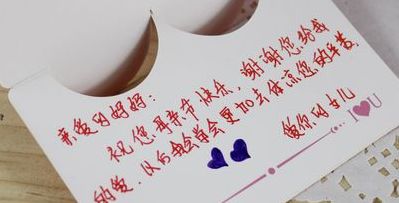 亲爱的妈妈：
祝您母亲节快乐，谢谢您给我
的爱．以后我会学会更加去体谅您的辛苦．
爱你的女儿
I♥U